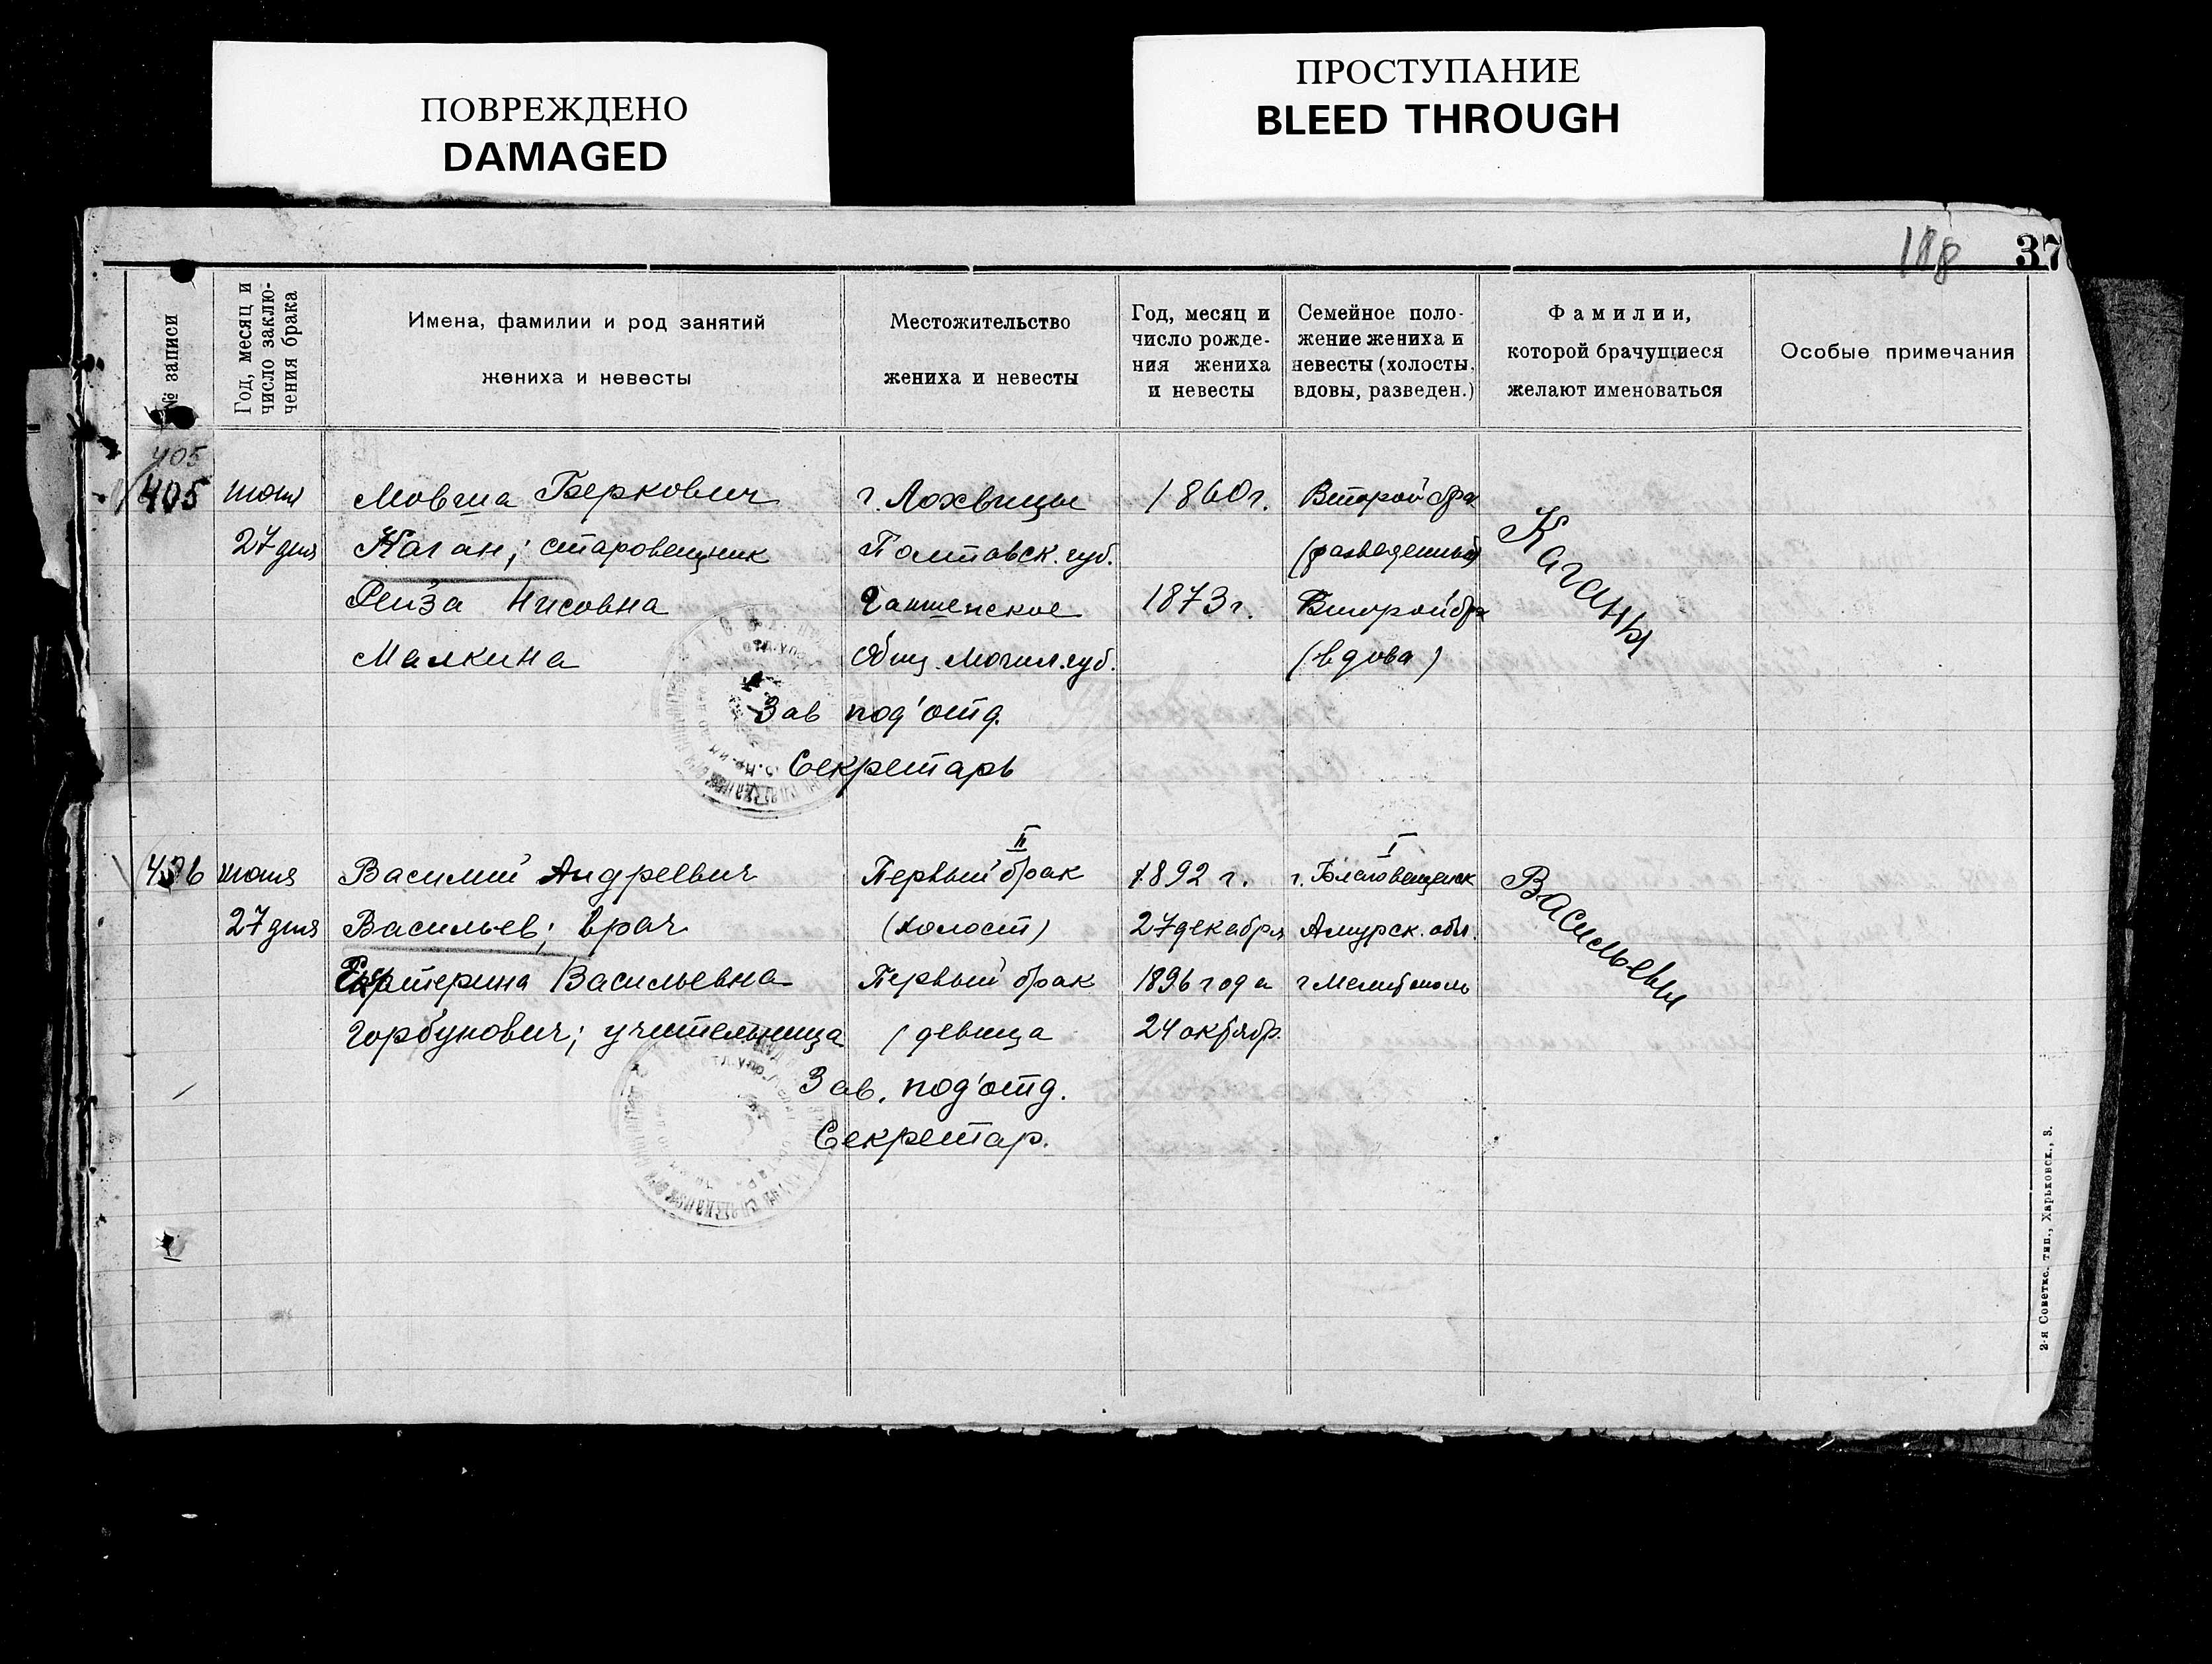 ПОВРЕЖДЕНО
DAMAGED
ПРОСТУПАНИЕ
BLEED THROUGH
188
37
№ записи
Год, месяц и
число заклю-
чения брака
Имена, фамилии и род занятий
жениха и невесты
Местожительство
жениха и невесты
Год, месяц и
число рожде-
ния жениха
и невесты
Семейное поло-
жение жениха и
невесты (холосты,
вдовы, разведен.)
Фамилии,
которой брачущиеся
желают именоваться
Особые примечания
405
405
27 дня
Мовша Беркович
Каган; старовещник
Рейза Нисовна
Малкина
г. Лохвицы
Полтавск. губ.
Общ. Могил. губ.
1860 г.
1873 г.
Второй бра
(разведенный)
Второй бра
(вдова)
Каганы
Зав под'отд.
Секретарь
406
27 дня
Василий Андреевич
Васильев; врач
Екатерина Васильевна
Горбунович; учительница
II
Первый брак
(холост)
Первый брак
(девица
1892 г.
27 декабря
1896 года
24 октябр.
I
г. Благовещенск
Амурск. обл.
г Мелитополь
Васильевы
Зав. под'отд.
Секретар.
2-я Советск. тип., Харьковск., 3.